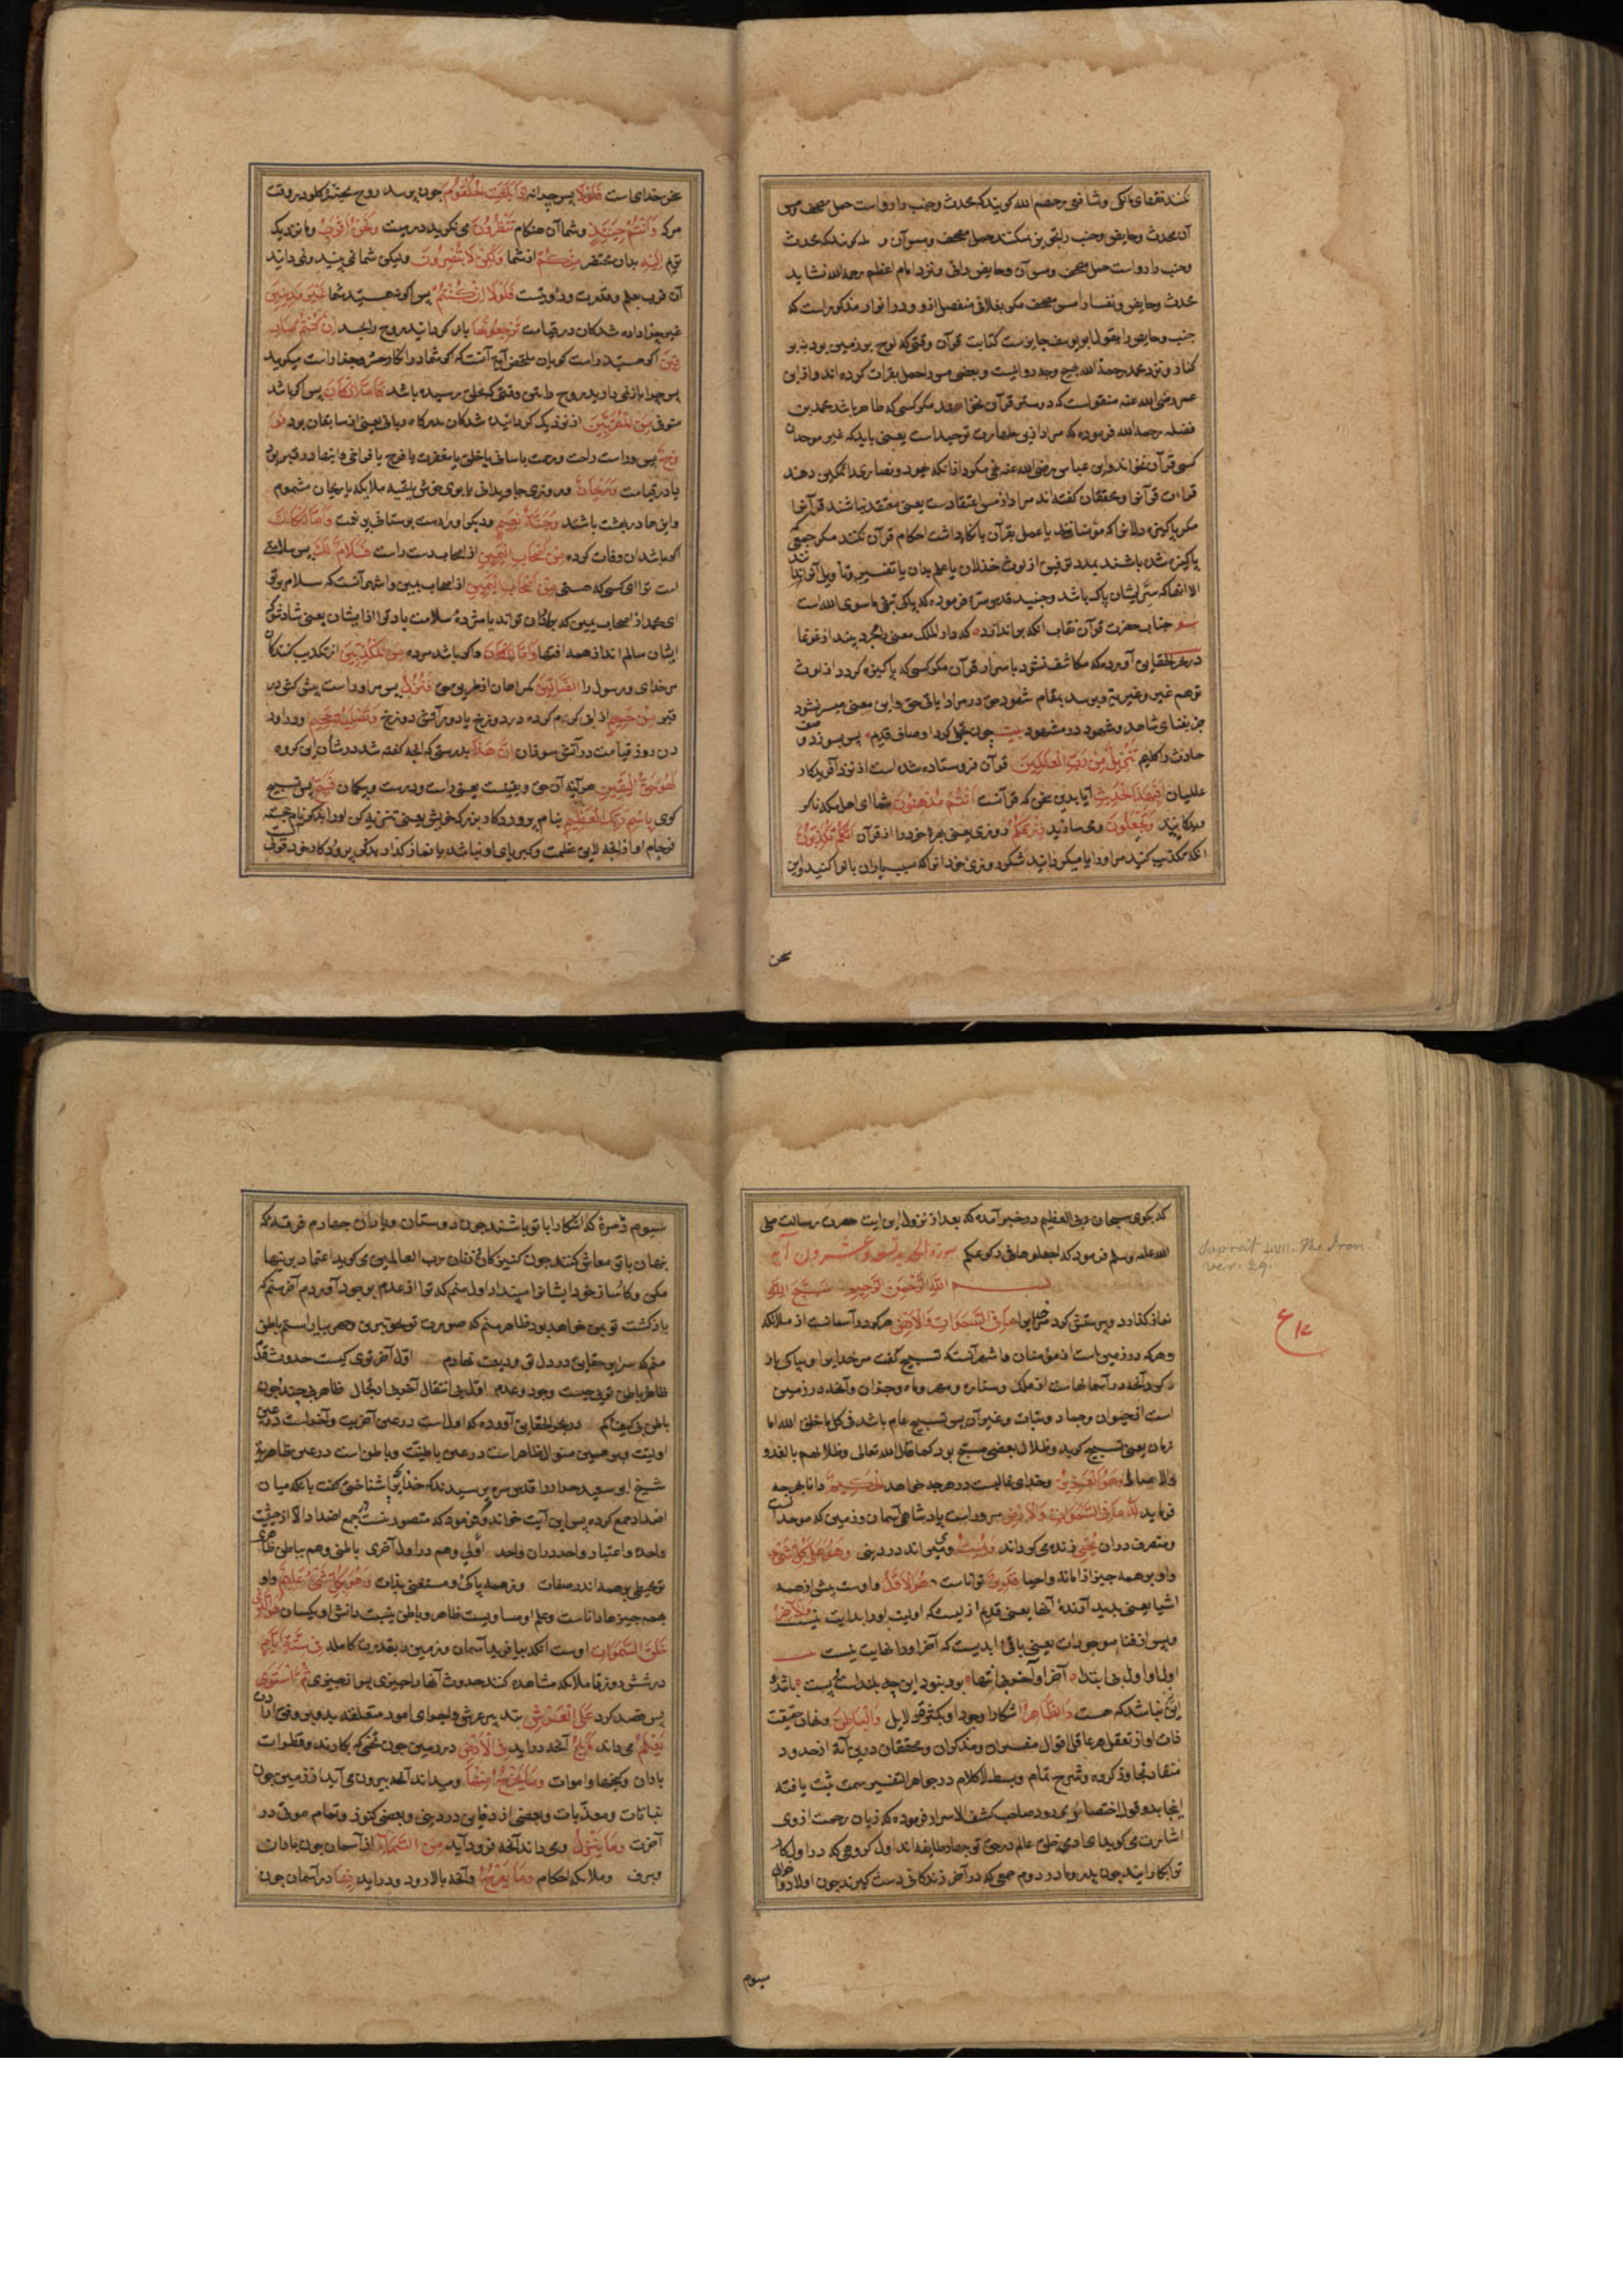 کنند فقهای مالکی و شافعی رحمهم الله کویند که محدث و جنب را روا است حمل مصحف و مس
آن محدث و حایض و جنب را
و جنب را روا است حمل مصحف و مس آن و حایض را نی و نزد امام اعظم رحمه الله نشاید
محدث و حایض و نفسا را مس مصحف مکر بغلافی منفصل ازو و در انوار مذکور است که
جنب و حایض را بقول ابو یوسف جایز ست کتابت قرآن وقتی که لوح بر زمین بود نه بر
کنار و نزد محمد رحمة الله هیچ وجه روا نیست و بعضی مس را حمل بقرات کرده اند و از ابن
عمر رضی الله عنه منقول است که دوستر قرآن نخواهند مکر کسی که طاهر باشد محمد بن
فضل رحمه الله فرموده که مراد ازین طهارت توحید است یعنی باید که غیر موحدان
کسی قرآن نخواند و ابن عباس رضی الله عنه نهی میکرد از آنکه یهود و نصاری را تمکین دهند
قراءت قرآنرا و محققان کفته اند مراد از مس اعتقادست یعنی معتقد نباشند قرآنرا
مکر پاکیزه دلانی که مؤمنانند یا عمل بقرآن یا نکاه داشت احکام قرآن نکنند مکر جمعی
پاکیزه شده باشند بمدد توفیق از لوث خذلان یا علم بدان یا تفسیر و تأویل آنرا ندانند
الا آنها که سِرّ ایشان پاک باشد و جنید قدس سره فرموده که پاکی سر از ما سوی الله است
جناب حضرت قرآن نقاب آنکه بر اندازد که دار الملک معنی را مجرد بیند از غوغا
در بحر الحقایق آورده که مکاشف نشود باسرار قرآن مکر کسی که پاکیزه کردد از لوث
توهم غیر و غیریة و برسد بمقام شهود حق در مرایا و این معنی میسر نشود
جز بفنای شاهد و شهود در مشهود بیت چون تجلی کرد اوصاف قدیم پس بسوزد وصف
حادث را کلیم تَنْزِیلٌ مِنْ رَبِّ الْعَالَمِینَ قرآن فرو ستاده شده است از نزد آفریدکار
عالمیان اَفَبِهَذَا الْحَدِیثِ آیا بدین سخن که قرآنست اَنْتُمْ مُدْهِنُونَ شما ای اهل مکه
وَتَجْعَلُونَ و می سازید رِزْقَکُمْ روزی یعنی بهره خود را از قرآن اَنَّکُمْ تُکَذِّبُونَ
آنکه تکذیب کنید مر او را یا میکردانید شکر روزی خود را
سخن
سخن خدای است فَلَوْلَا پس چرا نه اِذَا بَلَغَتِ الْحُلْقُومَ چون برسد روح بحنجره کلو در وقت
مرک وَاَنْتُمْ حِینَئِذٍ و شما آن هنکام تَنْظُرُونَ می نکرید در میت وَنَحْنُ اَقْرَبُ و ما نزدیک
تریم اِلَیْهِ بدان محتضر مِنْکُمْ از شما وَلَکِنْ لَا تُبْصِرُونَ ولیکن شما نمی بینید و نمی دانید
آن قرب بعلم و قدرت و رؤیتست فَلَوْلَا اِنْ کُنْتُمْ پس اکر هستید شما غَیْرَ مَدِینِینَ
غیر جزا داده شدکان در قیامت تَرْجِعُونَهَا باز کردانید روح را بجسد اِنْ کُنْتُمْ صَادِ
قِینَ اکر هستید راست کویان ملخص آیة آنست که اکر شما را انکار حشر و جزا راست میکویید
پس چرا باز نمی دارید روح را حتی وقتی که بحلق رسیده باشد فَاَمَّا اِنْ کَانَ پس اکر باشد
متوفی مِنَ الْمُقَرَّبِینَ از نزدیک کردانیده شدکان بدرکاه ربانی یعنی از سابقان بود فَرَ
وْحٌ پس وراست راحت و رحمت
یا در قیامت وَرَیْحَانٌ و روزی جاودانی یا بوی خوش یا تحیه ملایکه یا ریحان مشموم
و اینها در بهشت باشند وَجَنَّةُ نَعِیمٍ و دیکر او راست بوستانی پر نعمت وَاَمَّا اِنْ کَانَ
اکر باشد آن وفات کرده مِنْ اَصْحَابِ الْیَمِینِ از اصحاب دست راست فَسَلَامٌ لَکَ پس سلامتی
است ترا ای کسی که هستی مِنْ اَصْحَابِ الْیَمِینِ از اصحاب یمین و اشهر آنست که سلام بر تو
ای محمد از اصحاب یمین که
ایشان سالم اند از همه آفتها وَاَمَّا اِنْ کَانَ و اکر باشد مرده مِنَ الْمُکَذِّبِینَ از تکذیب کنندکان
مر خدای و رسول را الضَّالِّینَ کمراهان از طریق حق فَنُزُلٌ پس مر او راست پیش کش در
قبر مِنْ حَمِیمٍ از آب کرم کرده در دوزخ یا دور آتش دوزخ وَتَصْلِیَةُ جَحِیمٍ و در آورد
ن در روز قیامت در آتش سوزان اِنَّ هَذَا بدرستی که آنچه کفته شد در شأن این کروه
لَهُوَ حَقُّ الْیَقِینِ هر آینه آن حق و یقینست یعنی راست و درست و بیکمان فَسَبِّحْ پس تسبیح
کوی بِاسْمِ رَبِّکَ الْعَظِیمِ بنام پروردکار بزرک خویش یعنی تنزیه کن او را بذکر نام خجسته
فرجام او از آنچه لایق عظمت و کبریای او نباشد یا نماز کذار
که بکوی سبحان ربی العظیم در خبر آمده که بعد از نزول این آیت حضرت رسالت صلی
الله علیه وسلم فرمود که اجعلوها فی رکوعکم سورة الحدید تسعة وعشرون آیة
بسم الله الرحمن الرحیم سَبَّحَ لِلّٰهِ
نماز کذارد و پرستش کرد خدایرا مَا فِی السَّمَوَاتِ وَالْاَرْضِ هر که در آسمانست از ملائکه
و هر که در زمین است از مؤمنان و اشهر آنست که تسبیح کفت مر خدایرا و بپاکی یاد
کرد آنچه در آسمانهاست از فلک و ستاره و مهر و ماه و جز آن و آنچه در زمین
است از حیوان و جماد و نبات و غیر آن پس تسبیح عام باشد
کما قال الله تعالی وظلالهم بالغدو
والاصال وَهُوَ الْعَزِیزُ و خدای غالبست در هر چه خواهد الْحَکِیمُ دانا بهر چه
فرماید لَهُ مُلْکُ السَّمَوَاتِ وَالْاَرْضِ مر وراست پادشاهی آسمان و زمین که موجد است
و متصرف در آن یُحْیِی زنده می کرداند وَیُمِیتُ و میمیراند در دنیی وَهُوَ عَلَی کُلِّ شَیْءٍ
و او بر همه چیز از اماته و احیا قَدِیرٌ تواناست هُوَ الْاَوَّلُ و اوست پیش از همه
اشیا یعنی پدید آرنده آنها یعنی قدیم ازلیست که اولیت او را بدایت نیست وَالْآخِرُ
و پس از فنا موجودات یعنی باقی ابدیست که آخر او را نهایت نیست
اول او اول بی ابتدا آخر او آخر بی انتها بود و نبود این چه بلندست و پست باشد
این نباشد که هست وَالظَّاهِرُ آشکارا وجود او بکثرت دلایل وَالْبَاطِنُ و نهان حقیقت
ذات او از تعقل هر عاقل اقوال مفسران و مذکران و محققان درین آیة از حدود
متعارف تجاوز کرده و شرح تمام و بسط لاکلام در جواهر التفسیر سمت ثبت یافته
اینجا بدو قول اختصار میرود صاحب کشف الاسرار فرموده که زبان رحمت از روی
اشارت می کوید ای آدمی خلق عالم در حق تو چهار طایفه اند اول کروهی که در اول کار
ترا بکار آیند چون پدر و مادر دوم جمعی که در آخر زندکانی دست کیرند چون اولاد
Soorat LVII. The Iron
ver. 29.
سیوم
سیوم زمره که آشکارا با تو باشند چون دوستان و یاران چهارم فرقه که
پنهان با تو معاش کنند چون کنیزکان و زنان رب العالمین می کوید اعتماد برینها
مکن و کارساز خود ایشانرا مپندار اول منم که ترا از عدم بوجود آوردم آخر منم که
باز کشت تو بمن خواهد بود ظاهر منم که صورت تو بخوبترین وجهی بیاراستم باطن
منم که اسرار حقایق در دل تو ودیعت نهادم اول و آخر توی کیست حدوث و قدم
ظاهر و باطن توی چیست وجود و عدم اول بی انتقال آخر بی ارتحال ظاهر بی چند و چون
باطن بی کیف و کم در بحر الحقایق آورده که اولست در عین آخریت و آخر است در عین
اولیت و برهمین منوال ظاهر است در عین باطنیت و باطن است در عین ظاهریة
شیخ ابو سعید خراز را قدس سره پرسیدند که خدایرا بچه شناختی کفت بآنکه میان
اضداد جمع کرده پس این آیت خواند و فرمود که متصور نیست جمع اضداد الا از حیثیت
واحده و اعتبار واحد در آن واحد اولی و هم در اول آخری باطنی و هم بباطن ظاهری
تو محیطی بر همه اندر صفات وز همه پاکی و مستغنی بذات وَهُوَ بِکُلِّ شَیْءٍ عَلِیمٌ و او
بهمه چیزها داناست و علم او مساویست ظاهر و باطن بنسبت دانش او یکسان هُوَ الَّذِی
خَلَقَ السَّمَوَاتِ اوست آنکه بیافرید آسمان و زمین را بقدرت کامله فِی سِتَّةِ اَیَّامٍ
در شش روز تا ملائکه مشاهده کنند حدوث آنها را چیزی پس از چیزی ثُمَّ اسْتَوَی
پس قصد کرد عَلَی الْعَرْشِ بتدبیر عرش و اجرای امور متعلقه بدو بر وفق ارادت
یَعْلَمُ می داند مَا یَلِجُ آنچه در آید فِی الْاَرْضِ در زمین چون تخمی که بکارند و قطرات
باران و کنجها و اموات وَمَا یَخْرُجُ مِنْهَا و میداند آنچه بیرون می آید از زمین چون
نباتات و معدنیات و بعضی از دفاین در دنیی و بعضی کنوز و تمام موتی در
آخرت وَمَا یَنْزِلُ و می داند آنچه فرود آید مِنَ السَّمَاءِ از آسمان چون باران
و برف و ملائکه و احکام وَمَا یَعْرُجُ و آنچه بالا رود و در آید فِیهَا در آسمان چون